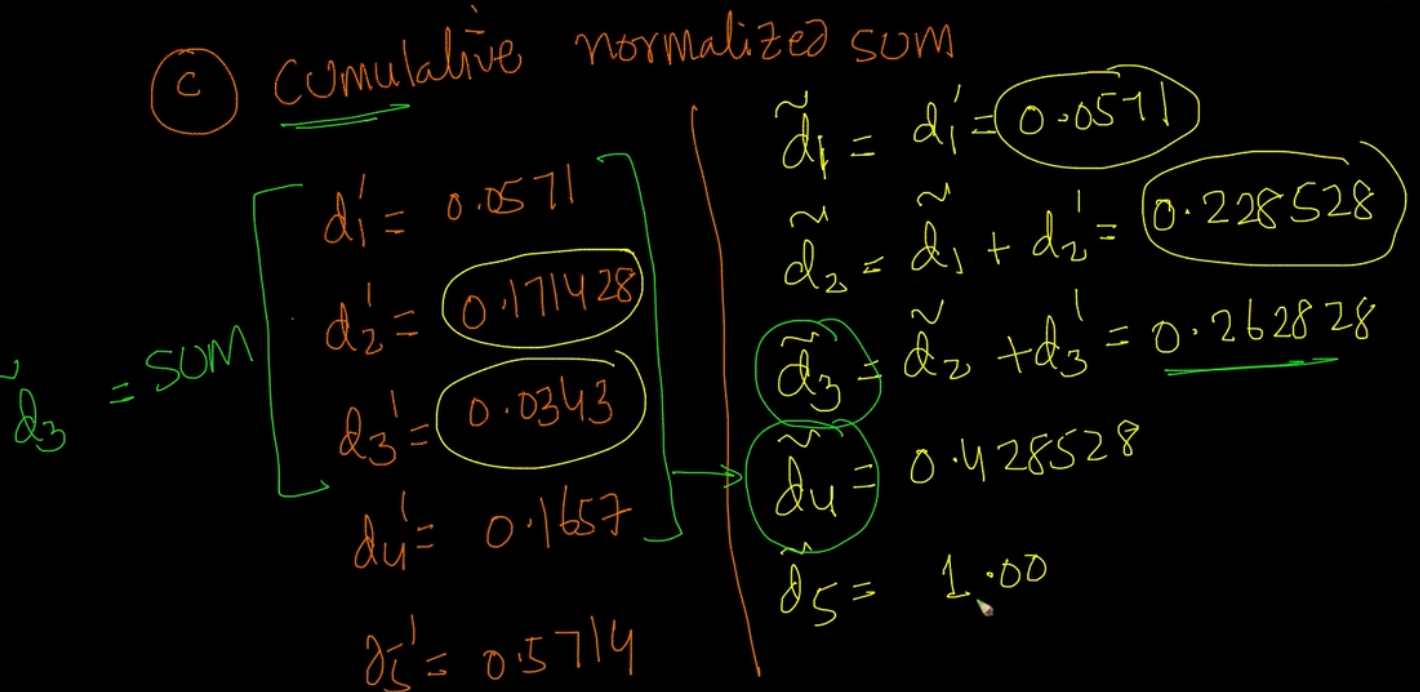 c cumulative normalized sum
d₁' = 0.0571
d₂' = 0.171428
d₃' = 0.0343
d₄' = 0.1657
d₅' = 0.5714
d̃₃ = SUM
d̃₁ = d₁' = 0.0571
d̃₂ = d̃₁ + d₂' = 0.228528
d̃₃ = d̃₂ + d₃' = 0.262828
d̃₄ = 0.428528
d̃₅ = 1.00